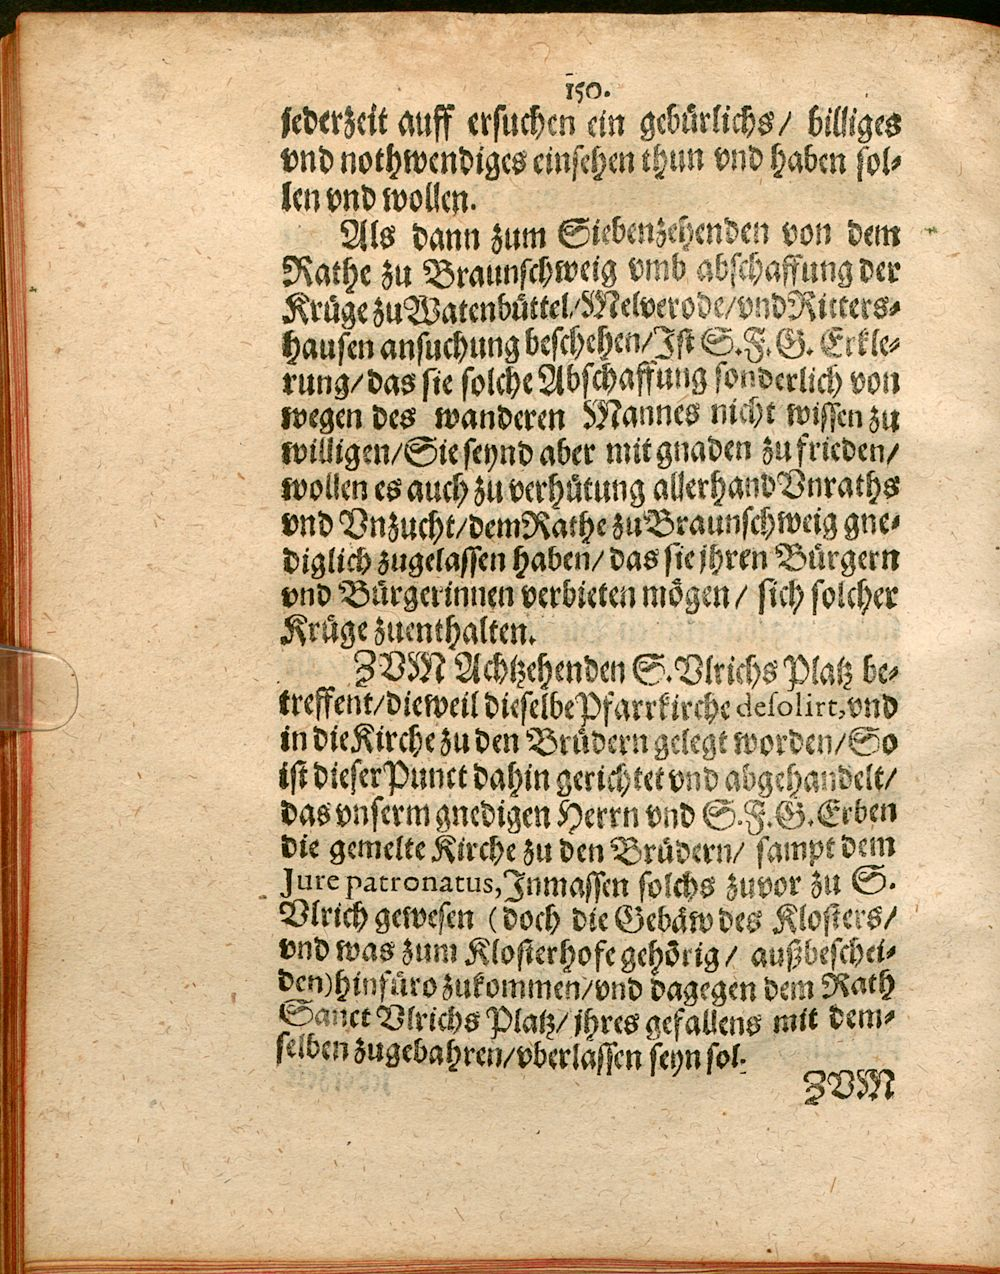 150.
jederzeit auff ersuchen ein gebürlichs/ billiges
vnd nothwendiges einsehen thun vnd haben sol-
len vnd wollen.
Als dann zum Siebenzehenden von dem
Rathe zu Braunschweig vmb abschaffung der
Krüge zu Watenbüttel/Melverode/vnd Ritters-
hausen ansuchung beschehen/Ist S.F.G. Erkle-
rung/das sie solche Abschaffung sonderlich von
wegen des wanderen Mannes nicht wissen zu
willigen/Sie seynd aber mit gnaden zu frieden/
wollen es auch zu verhütung allerhand Vnraths
vnd Vnzucht/dem Rathe zu Braunschweig gne-
diglich zugelassen haben/das sie jhren Bürgern
vnd Bürgerinnen verbieten mögen/ sich solcher
Krüge zuenthalten.
ZVM Achtzehenden S.Vlrichs Platz be-
treffent/dieweil dieselbe Pfarrkirche desolirt,vnd
in die Kirche zu den Brüdern gelegt worden/So
ist dieser Punct dahin gerichtet vnd abgehandelt/
das vnserm gnedigen Herrn vnd S.F.G.Erben
die gemelte Kirche zu den Brüdern/ sampt dem
Jure patronatus,Inmassen solchs zuvor zu S.
Vlrich gewesen (doch die Gebäw des Klosters/
vnd was zum Klosterhofe gehörig/ außbeschei-
den) hinfüro zukommen/vnd dagegen dem Rath
Sanct Vlrichs Platz/jhres gefallens mit dem-
selben zugebahren/vberlassen seyn sol.
ZVM